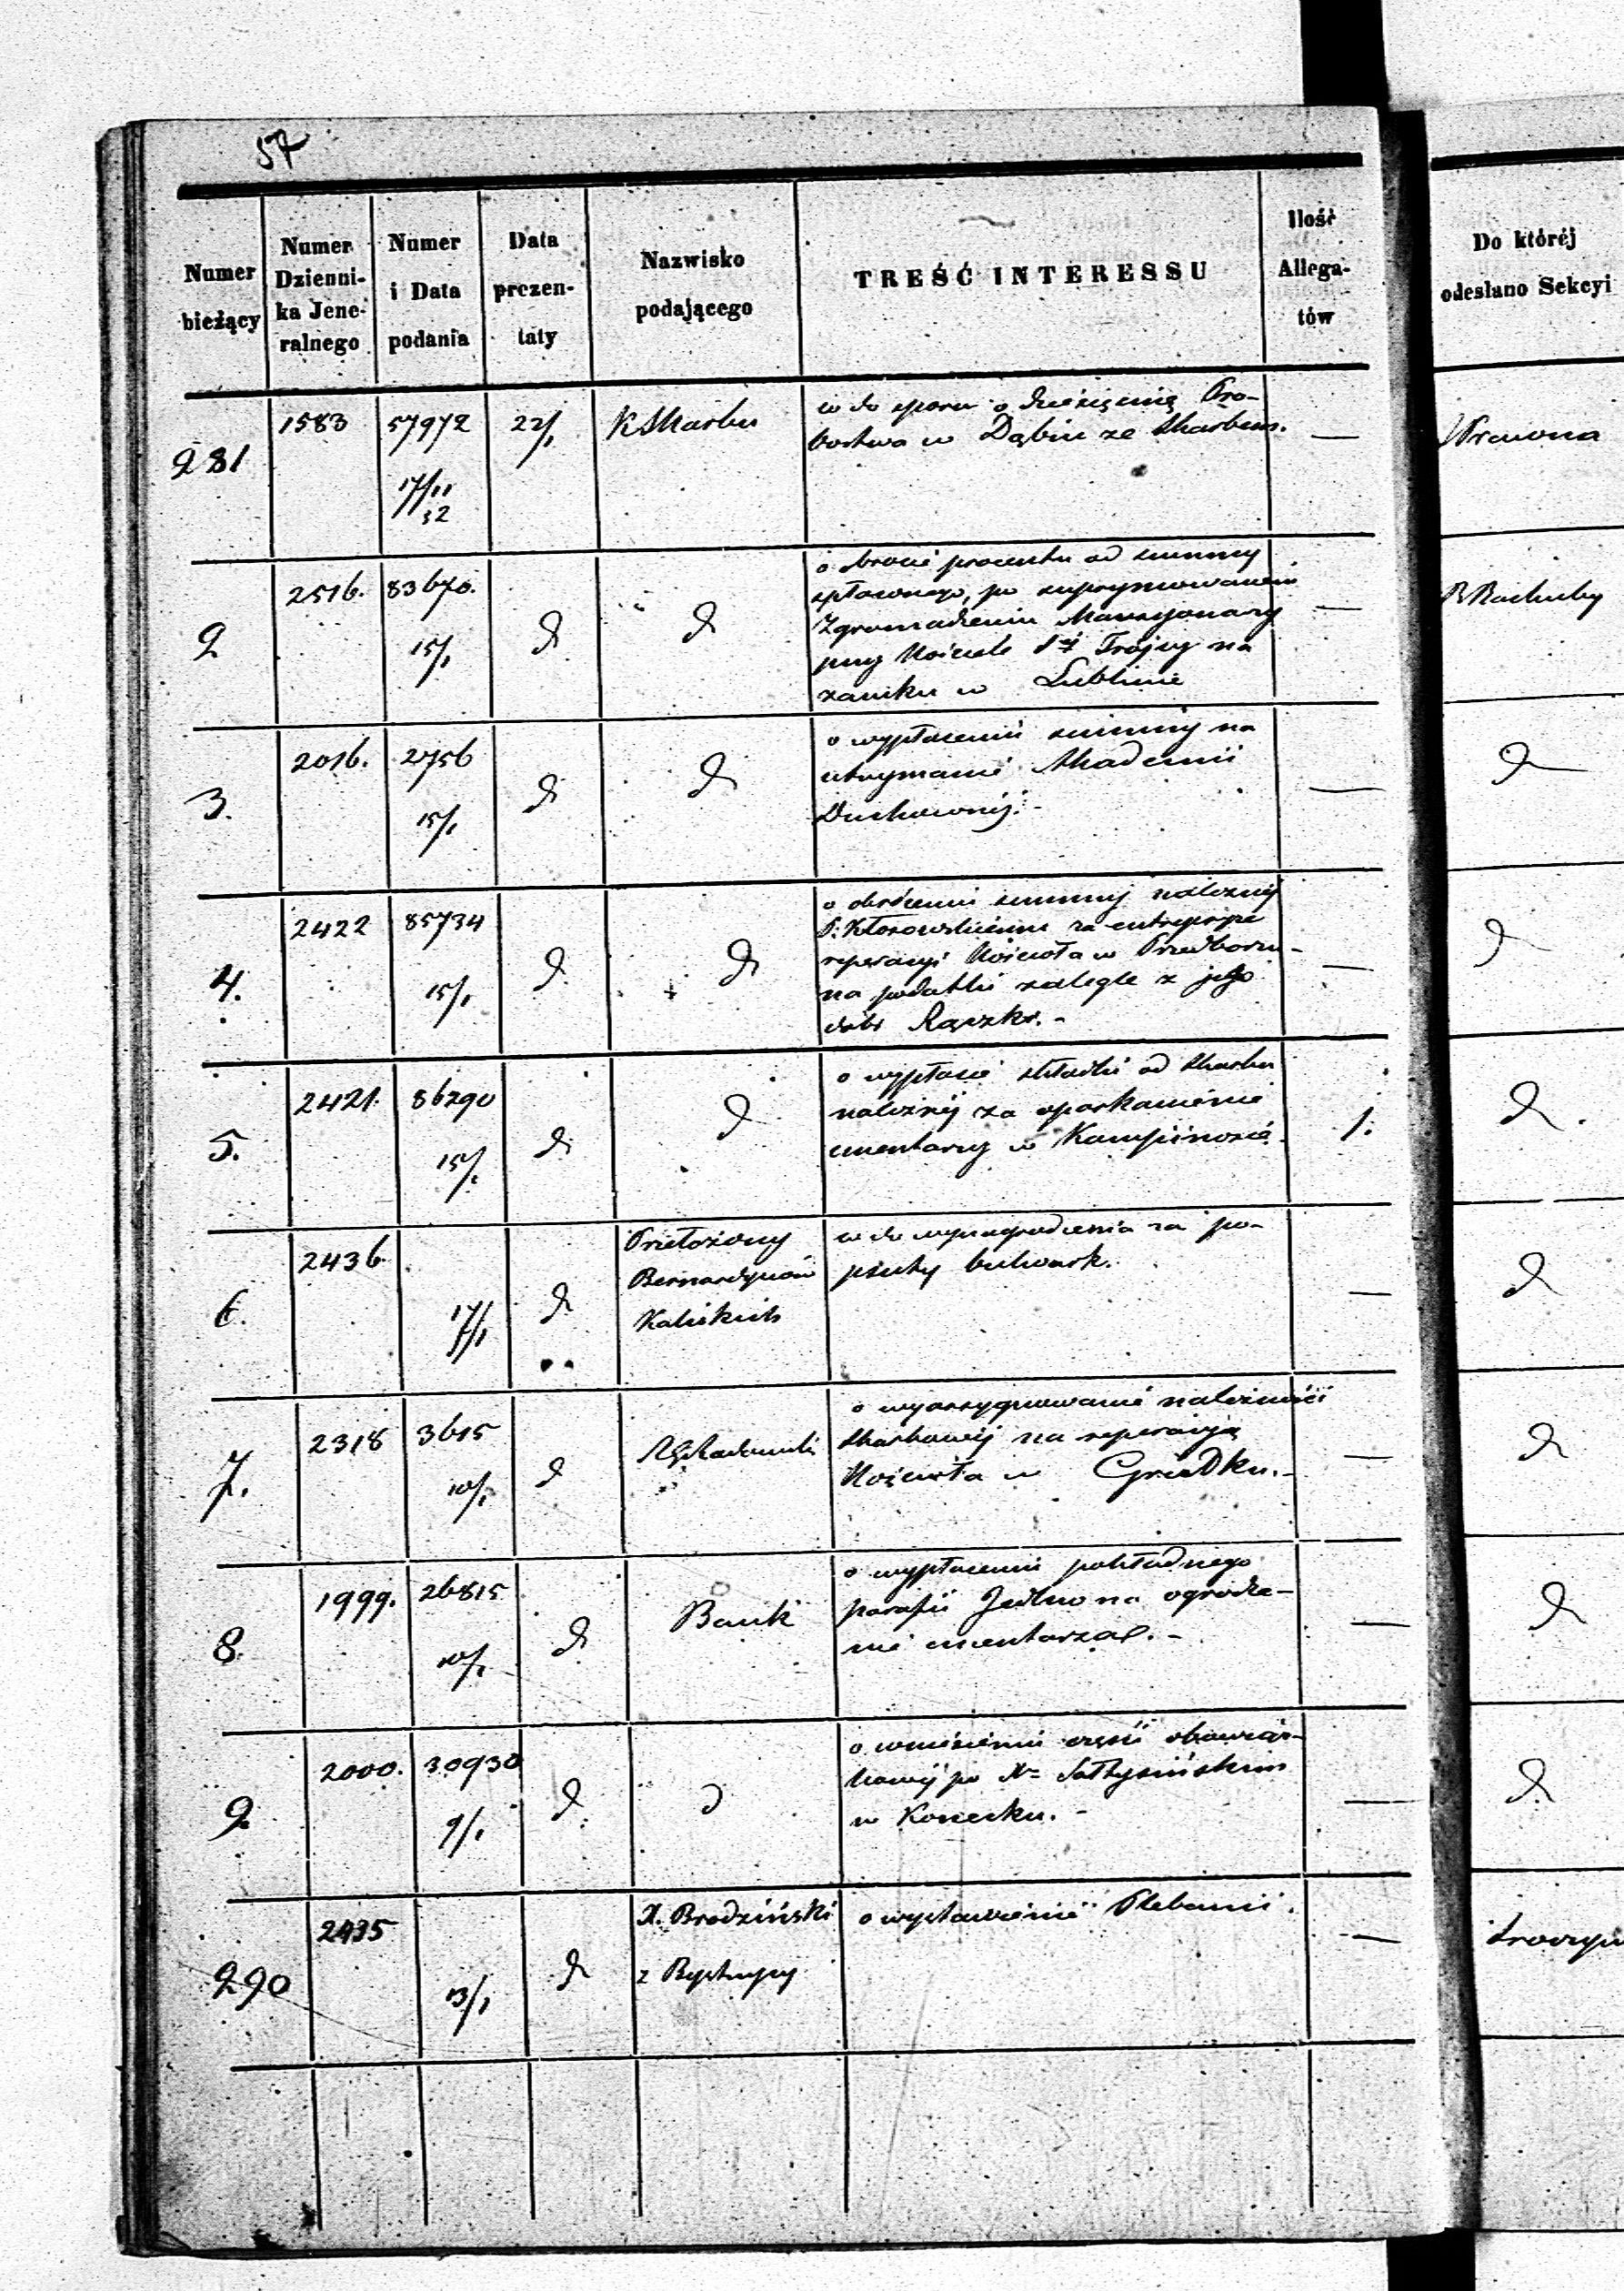 57
Numer bieżący
Numer Dzienni- ka Jene- ralnego
Numer i Data podania
Data prezen- taty
Nazwisko podającego
TREŚĆ INTERESSU
Ilość Allega- tów
Do któréj odesłano Sekcyi
281
1583
57972
17/11 52
22/1
K Skarbu
w do sporu o dziesięcinę Pro-
bostwa w Dąbiu ze skarbem.
—
Prawna
2
2516.
83670.
15/1
d
d
o zwrocie procentu od summy
spłaconego, po supprymowaniu
Zgromadzeniu Mansyonarzy
przy Kościele Stej Trójcy na
zamku w Lublinie
—
Rachuby
3.
2016.
2756
15/1
d
d
o wypłacenie summy na
utrzymanie Akademii
Duchownéj.-
—
d
4.
2422
85734
15/1
d
d
o obróceniu summy należnéj
P. za entrepryzę
reperacyi Kościoła w Przedborzu
na podatki zaległe z jego
dóbr Rączki.-
—
d
5.
2421.
86290
15/1
d
d
o wypłacie składki od skarbu
należnéj za oparkanienie
cmentarzy w Kampinosie
1.
d.
6.
2436
17/1
d
Przełożony
Bernardynów
Kaliskich
w do wynagrodzenia za po-
psuty bulwark.
—
d
7.
2318
3615
10/1
d
RG Radomski
o wyassygnowanie należności
skarbowéj na reperacyą
Kościoła w Gródku.-
—
d
8.
1999.
26815
10/1
d
Bank
o wypłacenie pokładnego
parafii Jedlno na ogrodze-
nie cmentarza.-
—
d
9.
2000.
30930
9/1
d
d
o wniesienie części obowiąz-
kowéj po Xu Sołtysińskim
w Konecku.-
—
d.
290
2435
13/1
d
X. Brodziński
z Bystrzycy
o wystawienie Plebanii.
—